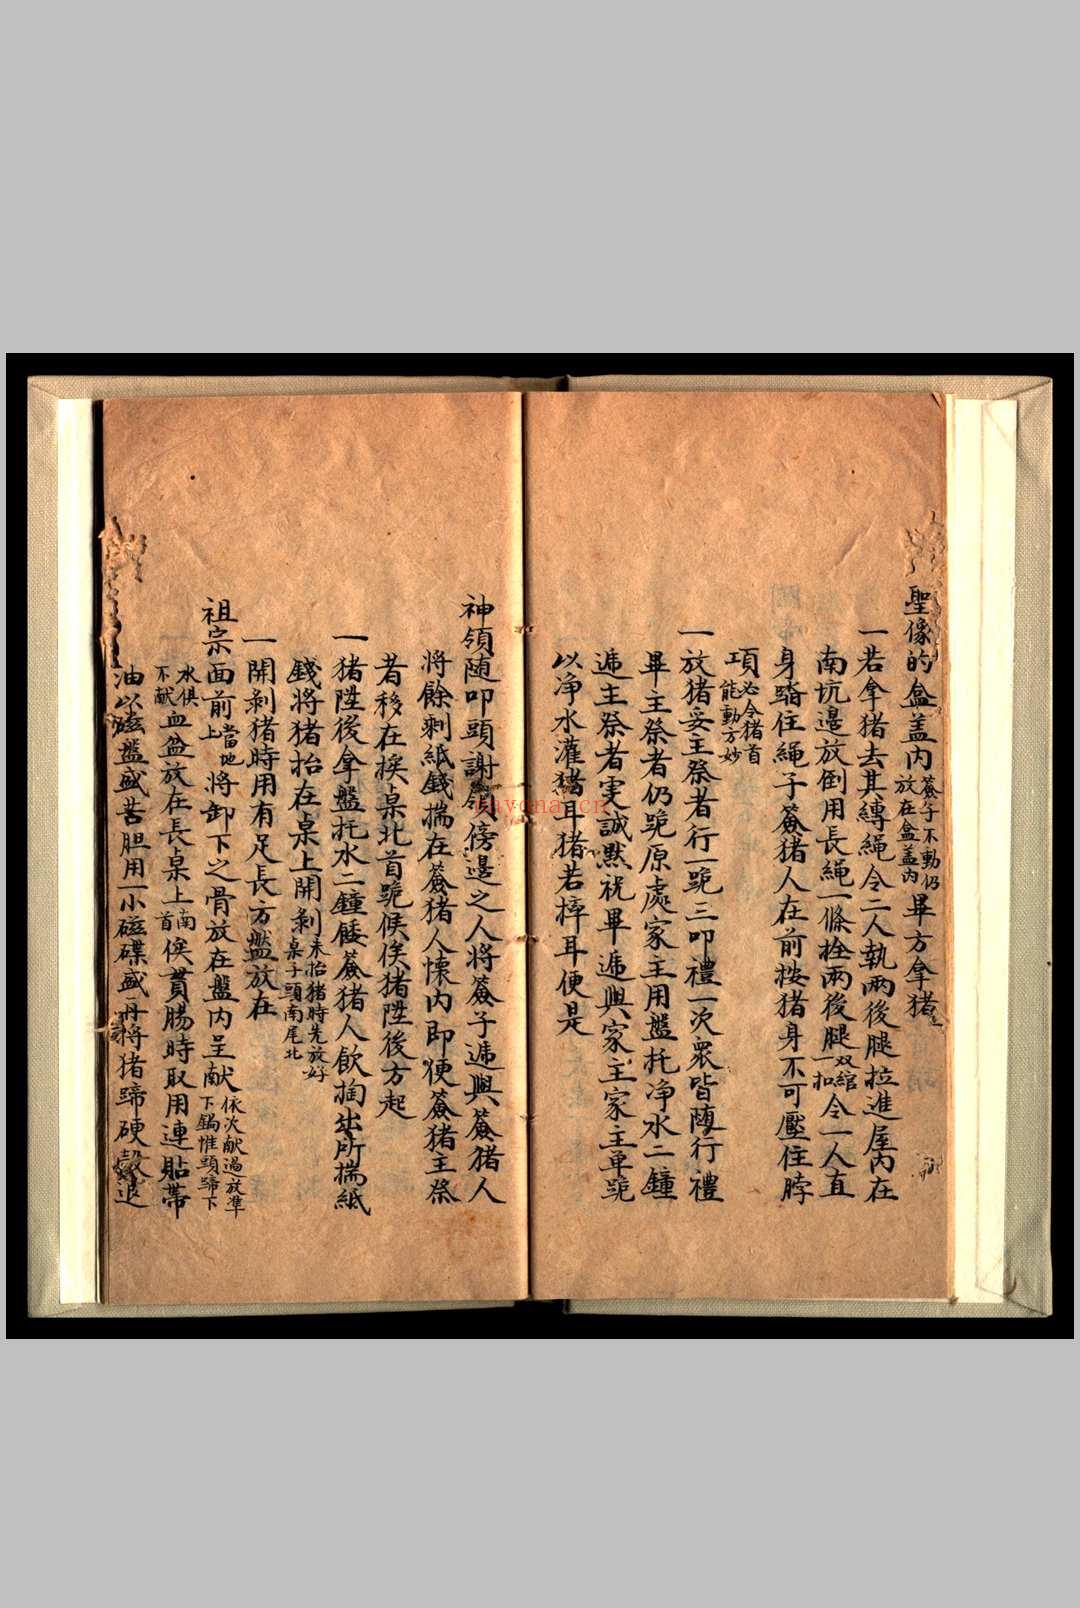 聖像的盒盖内簽子不動仍放在盒盖内畢方拿猪
一若拿猪去其縛繩令二人執兩後腿拉進屋内在
南坑邉放倒用長繩一條拴兩後腿双綰一扣令一人直
身踏住繩子簽猪人在前按猪身不可壓住脖
項必令猪首能動方妙
一放猪妥主祭者行一跪三叩禮一次衆皆随行禮
畢主祭者仍跪原處家主用盤托净水二鐘
逓主祭者䖍誠黙祝畢逓與家主家主单跪
以净水灌猪耳猪若摔耳便是
神領随叩頭謝領傍邉之人將簽子逓與簽猪人
將餘剩紙錢揣在簽猪人懷内即便簽猪主祭
者移在挨桌北首跪候俟猪陞後方起
一猪陞後拿盤托水二鐘餧簽猪人飲掏出所揣紙
錢將猪抬在桌上開剥未抬猪時先放好桌子頭南尾北
一開剥猪時用有足長方盤放在
祖宗面前上當地將卸下之骨放在盤内呈献依次献過放準下鍋惟頭蹄下
水俱不献血盆放在長桌上南首俟貫腸時取用連貼帶
油以磁盤盛苦胆用一小磁碟盛再將猪蹄硬殼退